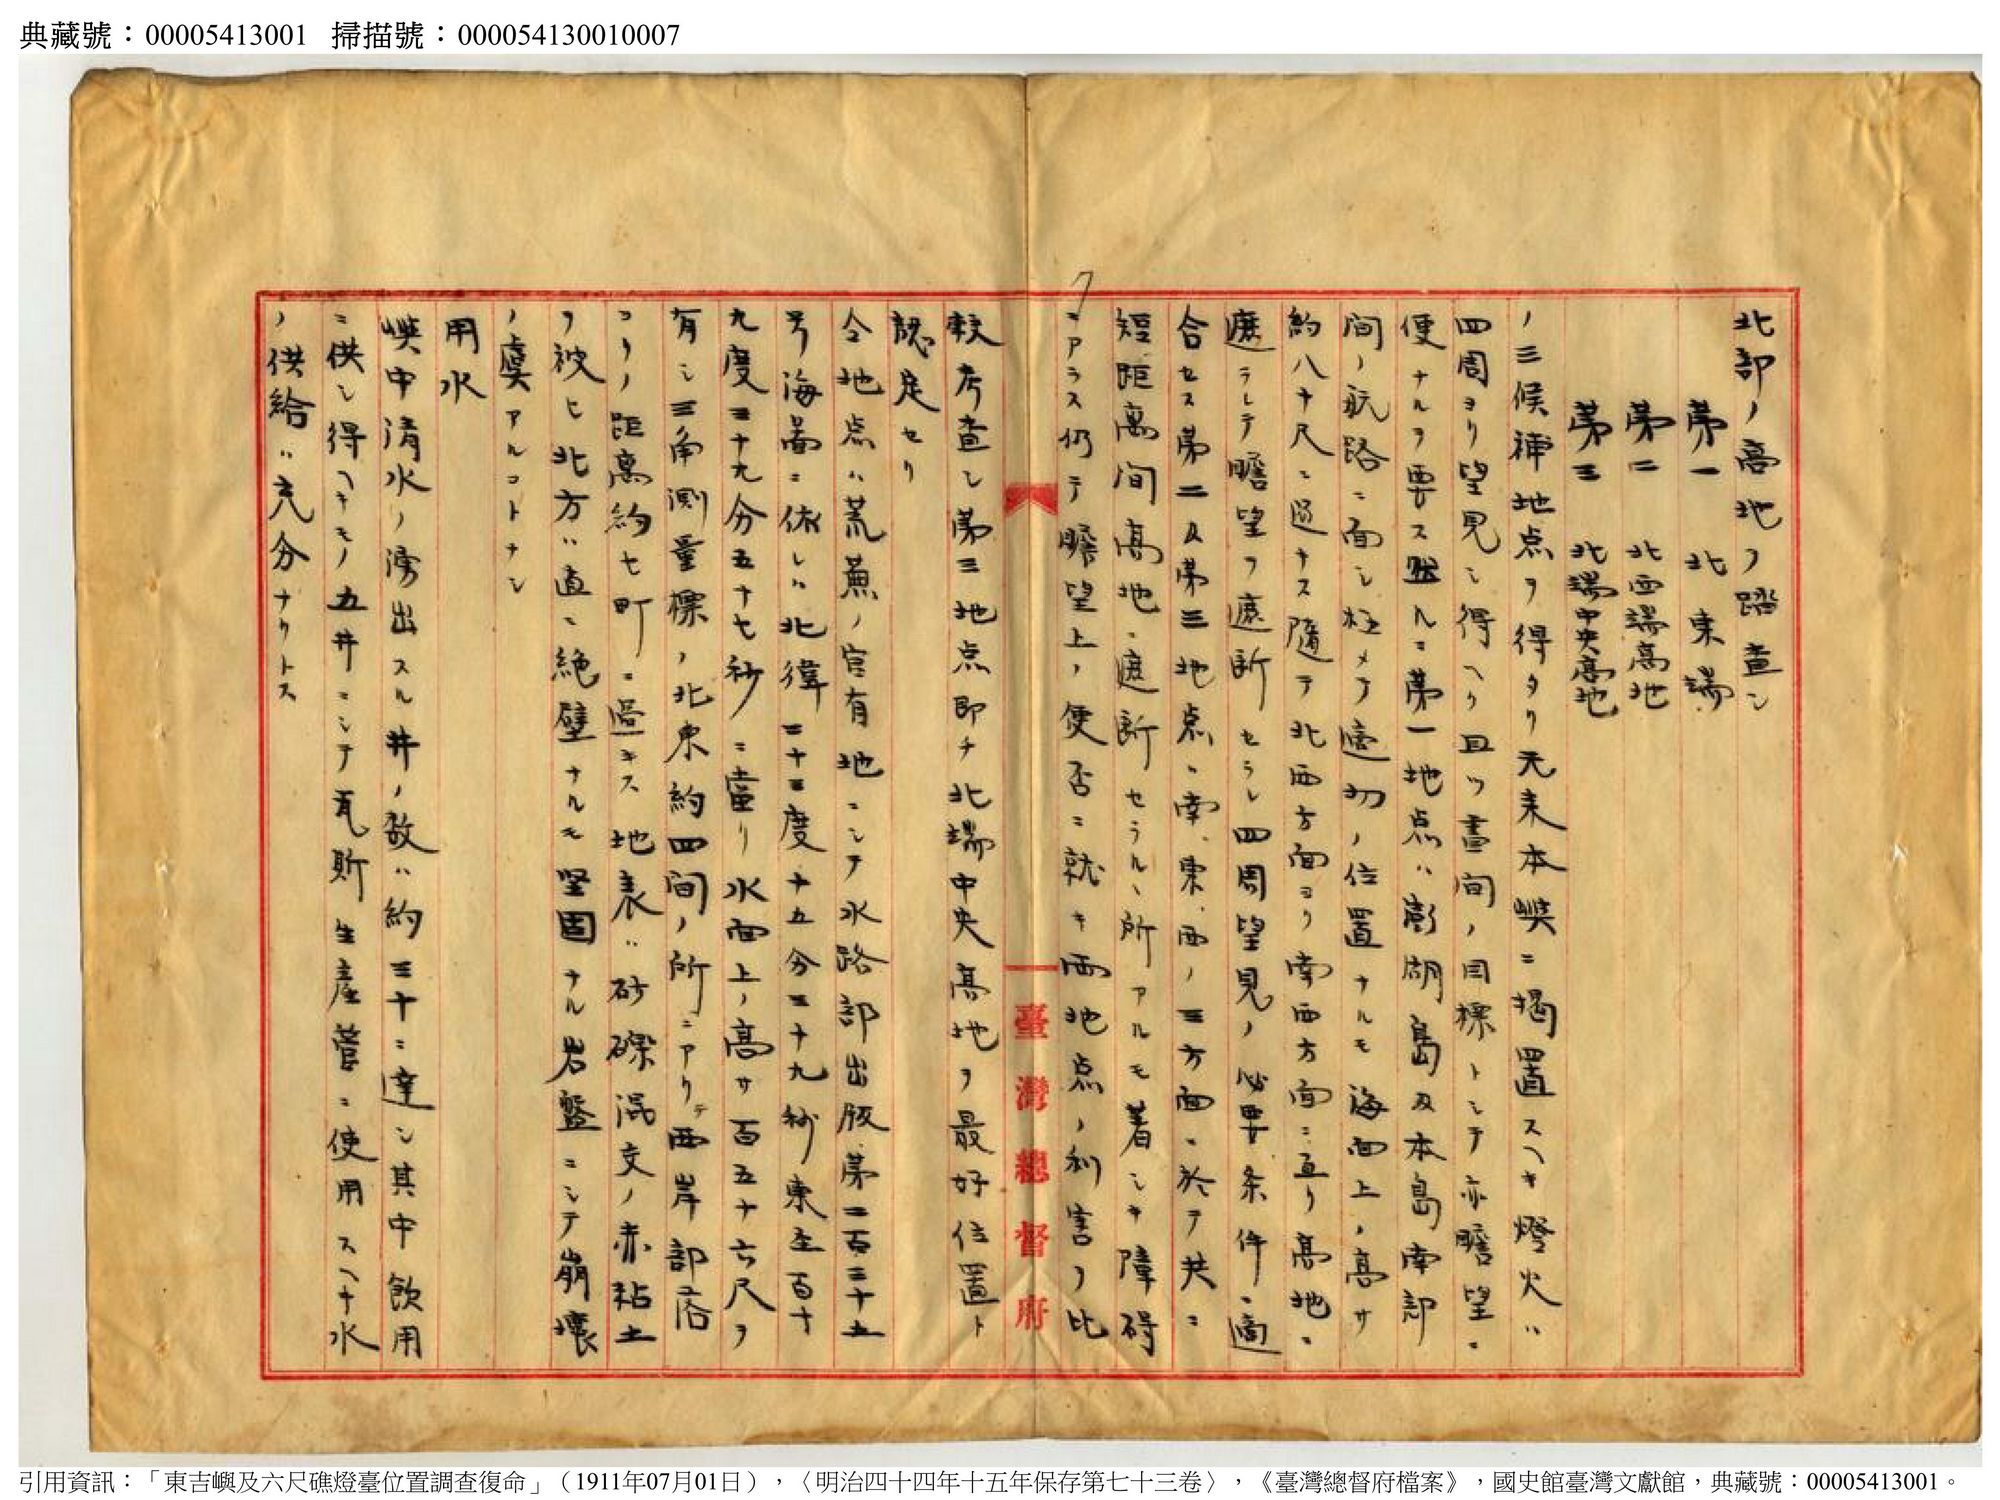 典藏號：00005413001 掃描號：000054130010007
北部ノ高地ヲ踏査シ
第一 北東端
第二 北西端高地
第三 北端中央高地
ノ三候補地点ヲ得タリ元来本嶼ニ掲置スヘキ燈火ハ
四周ヨリ望見シ得ヘク且ツ晝间ノ目標トシテ亦瞻望ニ
便ナルヲ要ス然ルニ第一地点ハ澎湖島及本島南部
间ノ航路ニ面シ極メテ適切ノ位置ナルモ海面上ノ高サ
約八十尺ニ過キス隨テ北西方面ヨリ南西方面ニ亘リ高地ニ
遮ラレテ瞻望ヲ遮断セラレ四周望見ノ必要条件ニ適
合セス第二及第三地点ハ南、東、西ノ三方面ニ於テ共ニ
短距离间高地ニ遮断セラルヽ所アルモ著シキ障碍
ニアラス仍テ瞻望上ノ便否ニ就キ両地点ノ利害ヲ比
較考査シ第三地点即チ北端中央高地ヲ最好位置ト
認定セリ
今地点ハ荒蕪ノ官有地ニシテ水路部出版第二百三十五
号海啚ニ依レハ北緯二十三度十五分三十九秒東至百十
九度三十九分五十七秒ニ當リ水面上ノ高サ百五十六尺ヲ
有シ三角測量標ノ北東約四间ノ所ニアリテ西岸部落
ヨリノ距离約七町ニ過キス地表ハ砂礫混交ノ赤粘土
ヲ被ヒ北方ハ直ニ絶壁ナルモ堅固ナル岩盤ニシテ崩壊
ノ虞アルコトナシ
用水
嶼中清水ノ湧出スル井ノ数ハ約三十ニ達シ其中飲用
ニ供シ得ヘキモノ五井ニシテ瓦斯生産管ニ使用スヘキ水
ノ供給ハ充分ナリトス
臺灣總督府
引用資訊：「東吉嶼及六尺礁燈臺位置調查復命」（1911年07月01日），〈明治四十四年十五年保存第七十三卷〉，《臺灣總督府檔案》，國史館臺灣文獻館，典藏號：00005413001。